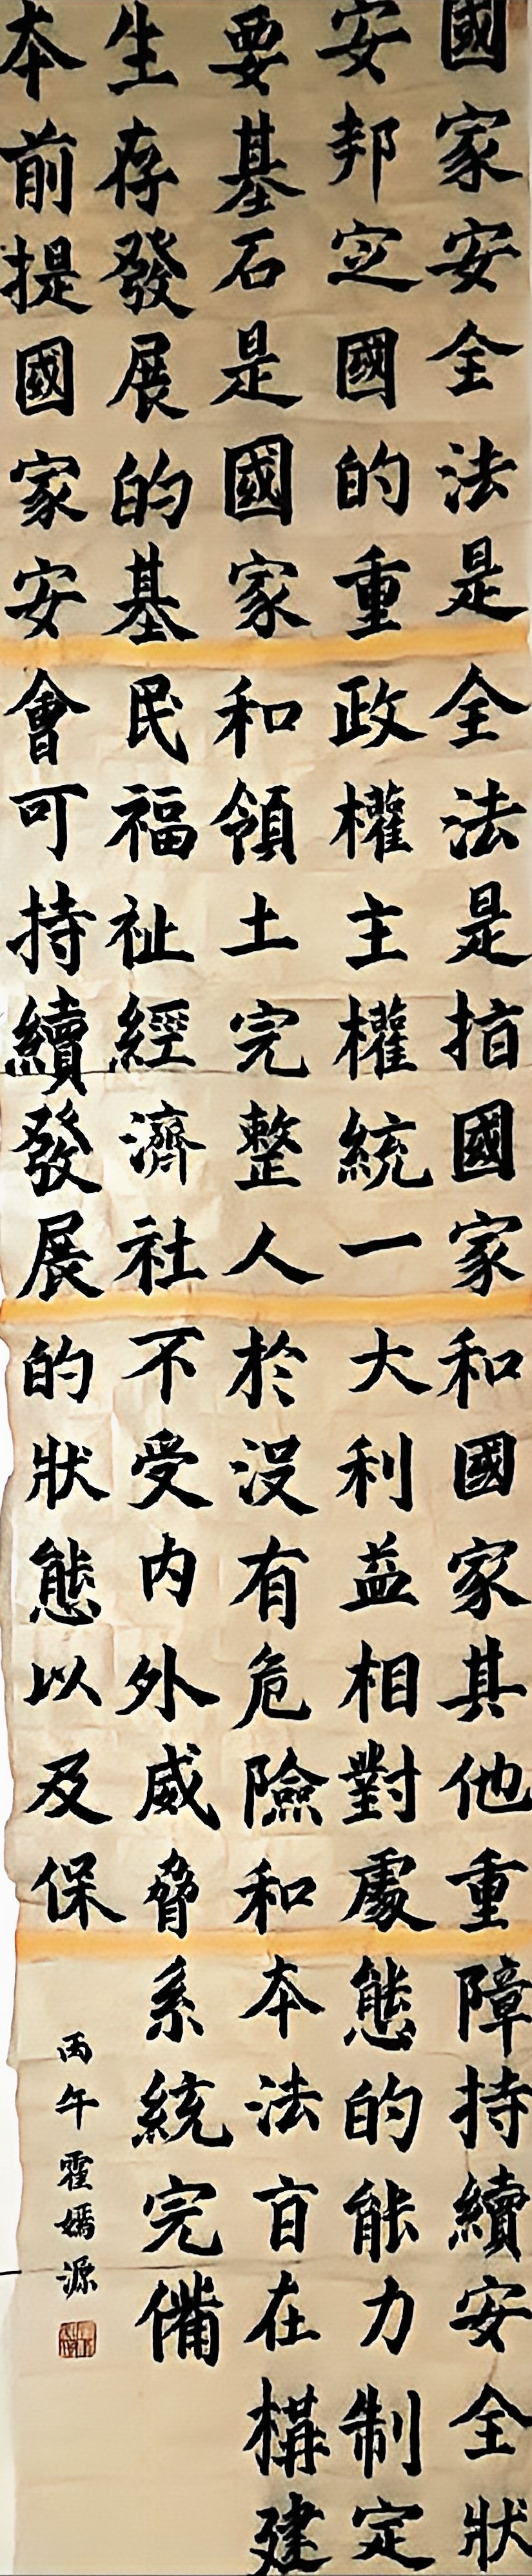 國家安全法是
安邦定國的重
要基石是國家
生存發展的基
本前提國家安
全法是指國家
政權主權統一
和領土完整人
民福祉經濟社
會可持續發展
和國家其他重
大利益相對處
於沒有危險和
不受内外威脅
的狀態以及保
障持續安全狀
態的能力制定
本法旨在構建
系統完備
丙午霍嫣源